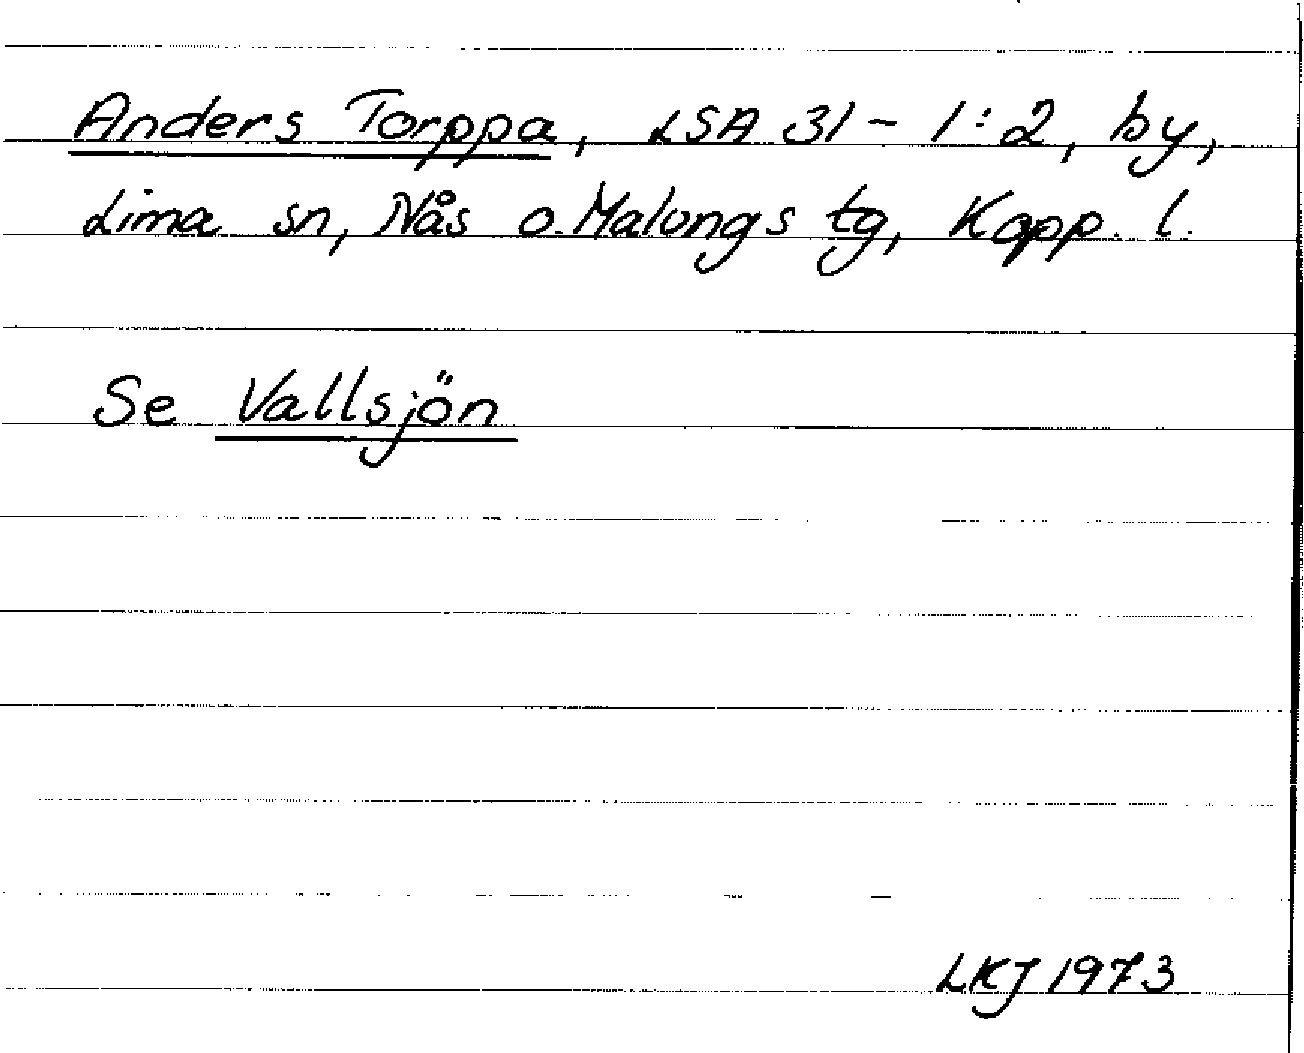 Anders Torppa, LSA 31 - 1:2, by,
Lima sn, Nås o. Malungs tg, Kopp. l.
Se Vallsjön
LKJ 1973